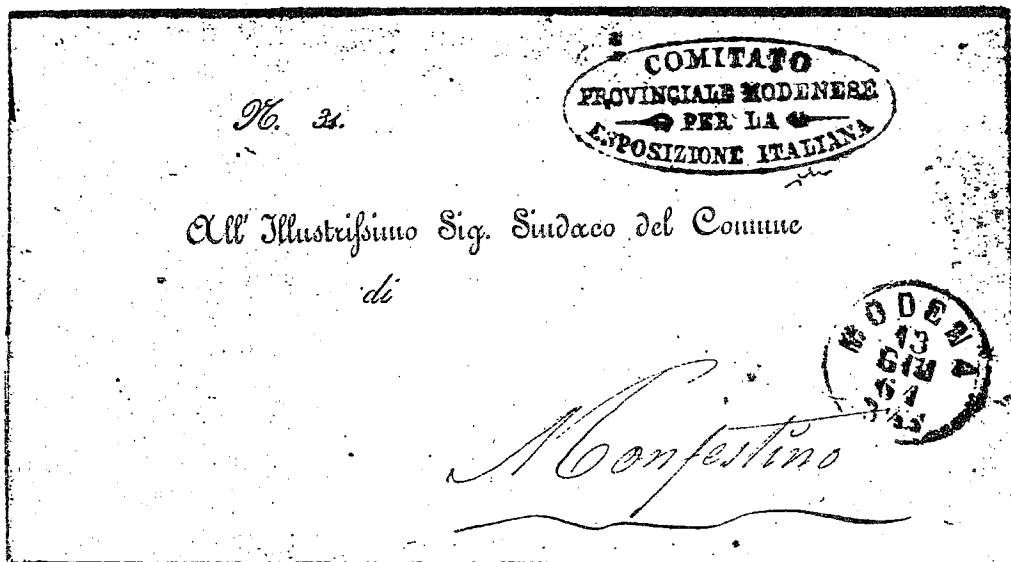 COMITATO
PROVINCIALE MODENESE
PER LA
ESPOSIZIONE ITALIANA
N. 31.
All' Illustrissimo Sig. Sindaco del Comune
di
MODENA
13
GIU
61
Monfestino